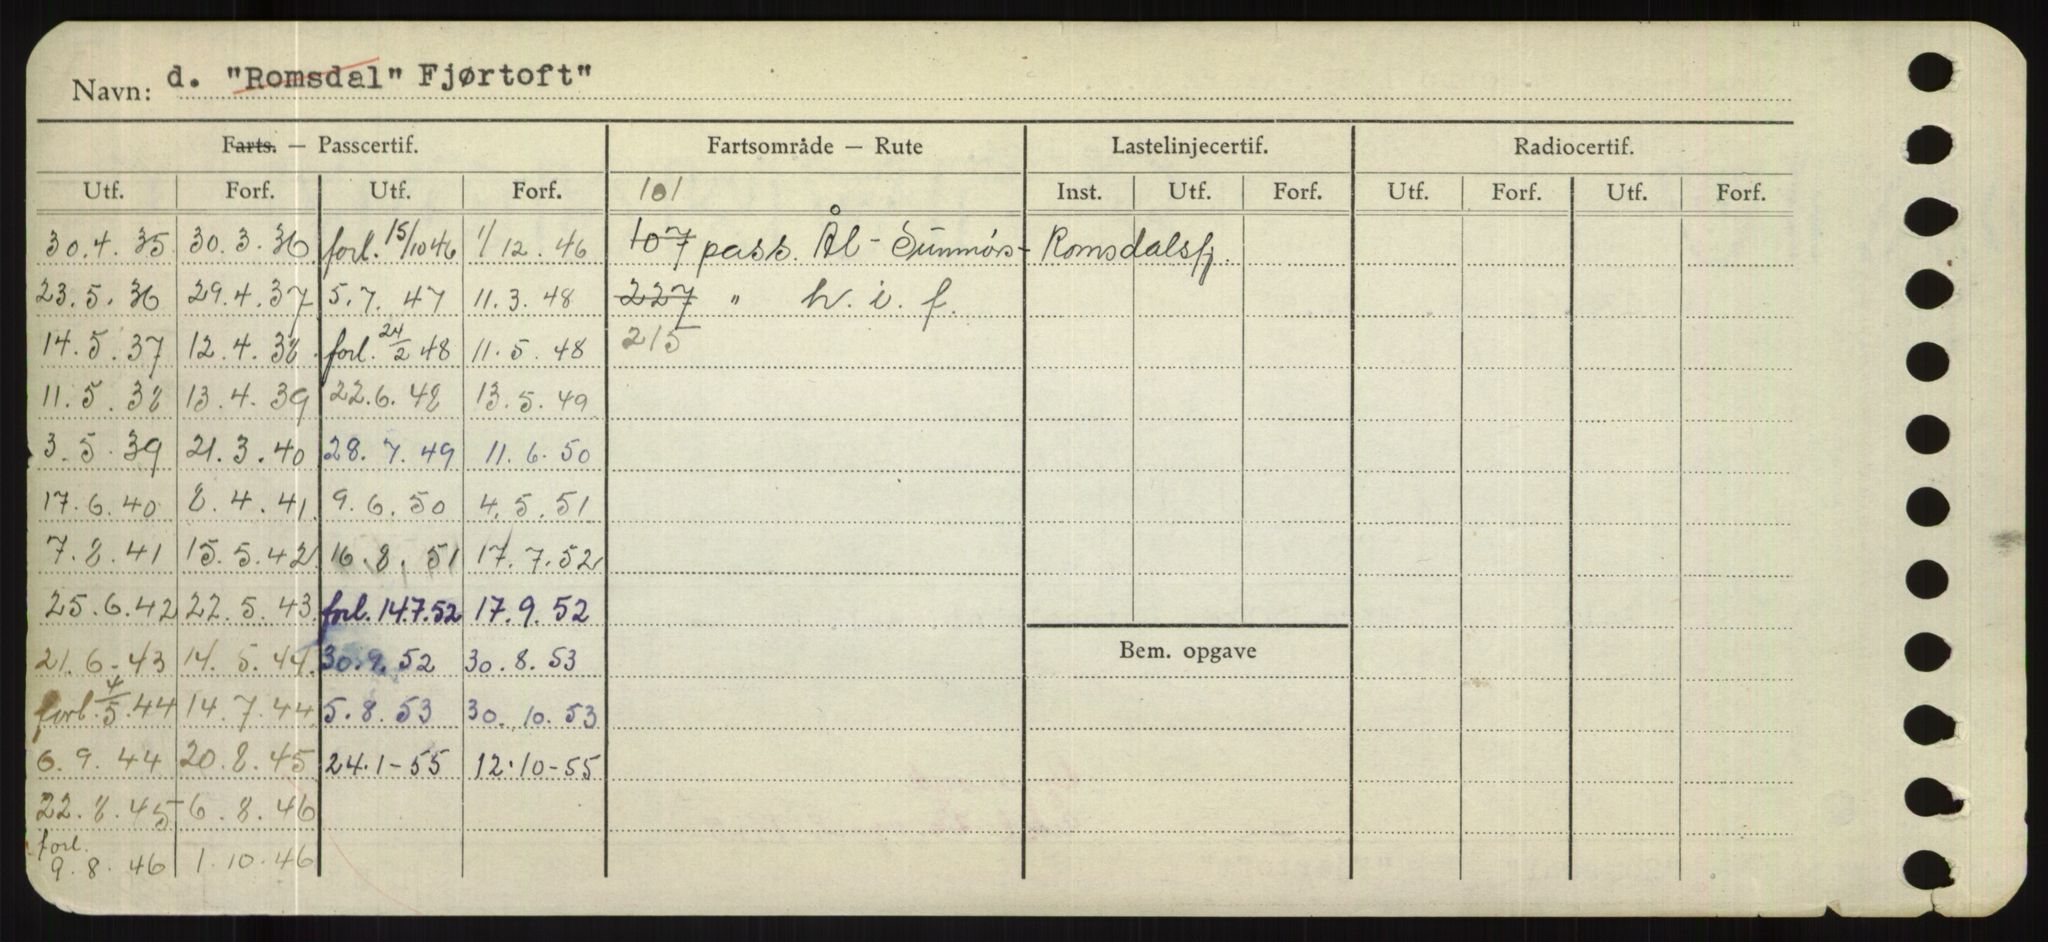 Navn: d. "Romsdal" Fjørtoft"
Farts. — Passcertif. Fartsområde — Rute Lastelinjecertif. Radiocertif.
Utf. Forf. Utf. Forf. 101 Inst. Utf. Forf. Utf. Forf. Utf. Forf.
30.4.35 30.3.36 forl. 15/10 46 1/12.46 107 pass. Ål - Sunmörs - Romsdalsfj.
23.5.36 29.4.37 5.7.47 11.3.48 227 " h.i.f.
14.5.37 12.4.38 forl. 24/2 48 11.5.48 215
11.5.38 13.4.39 22.6.48 13.5.49
3.5.39 21.3.40 28.7.49 11.6.50
17.6.40 8.4.41 9.6.50 4.5.51
7.8.41 15.5.42 16.8.51 17.7.52
25.6.42 22.5.43 forl. 14.7.52 17.9.52
21.6-43 14.5.44 30.9.52 30.8.53
Bem. opgave
forl. 4/5.44 14.7.44 5.8.53 30.10.53
6.9.44 20.8.45 24.1-55 12.10-55
22.8.45 6.8.46
forl.
9.8.46 1.10.46